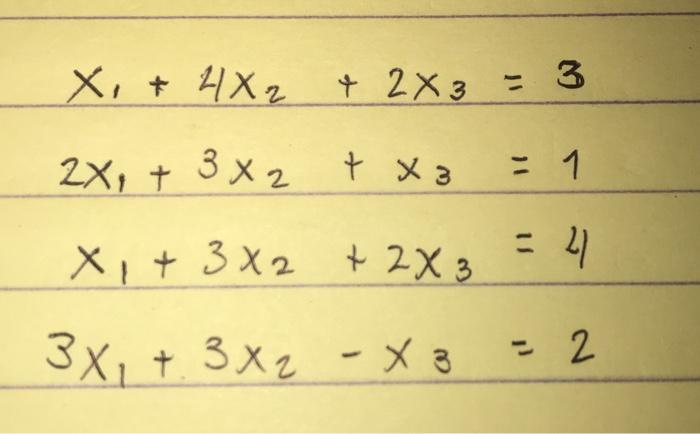 x₁ + 4x₂ + 2x₃ = 3
2x₁ + 3x₂ + x₃ = 1
x₁ + 3x₂ + 2x₃ = 4
3x₁ + 3x₂ - x₃ = 2